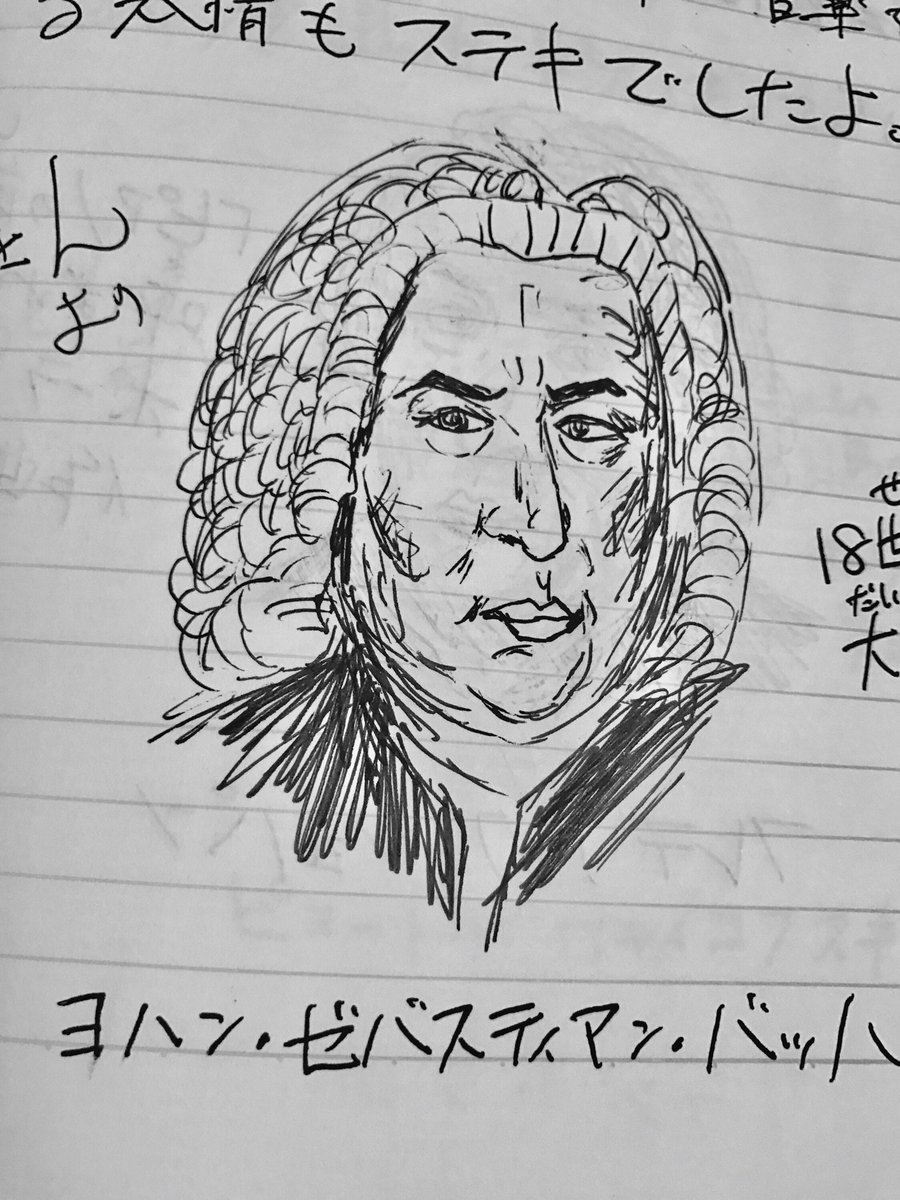 もステキでしたよ。
ん
より
18世
だい
大
ヨハン・ゼバスティアン・バッハ